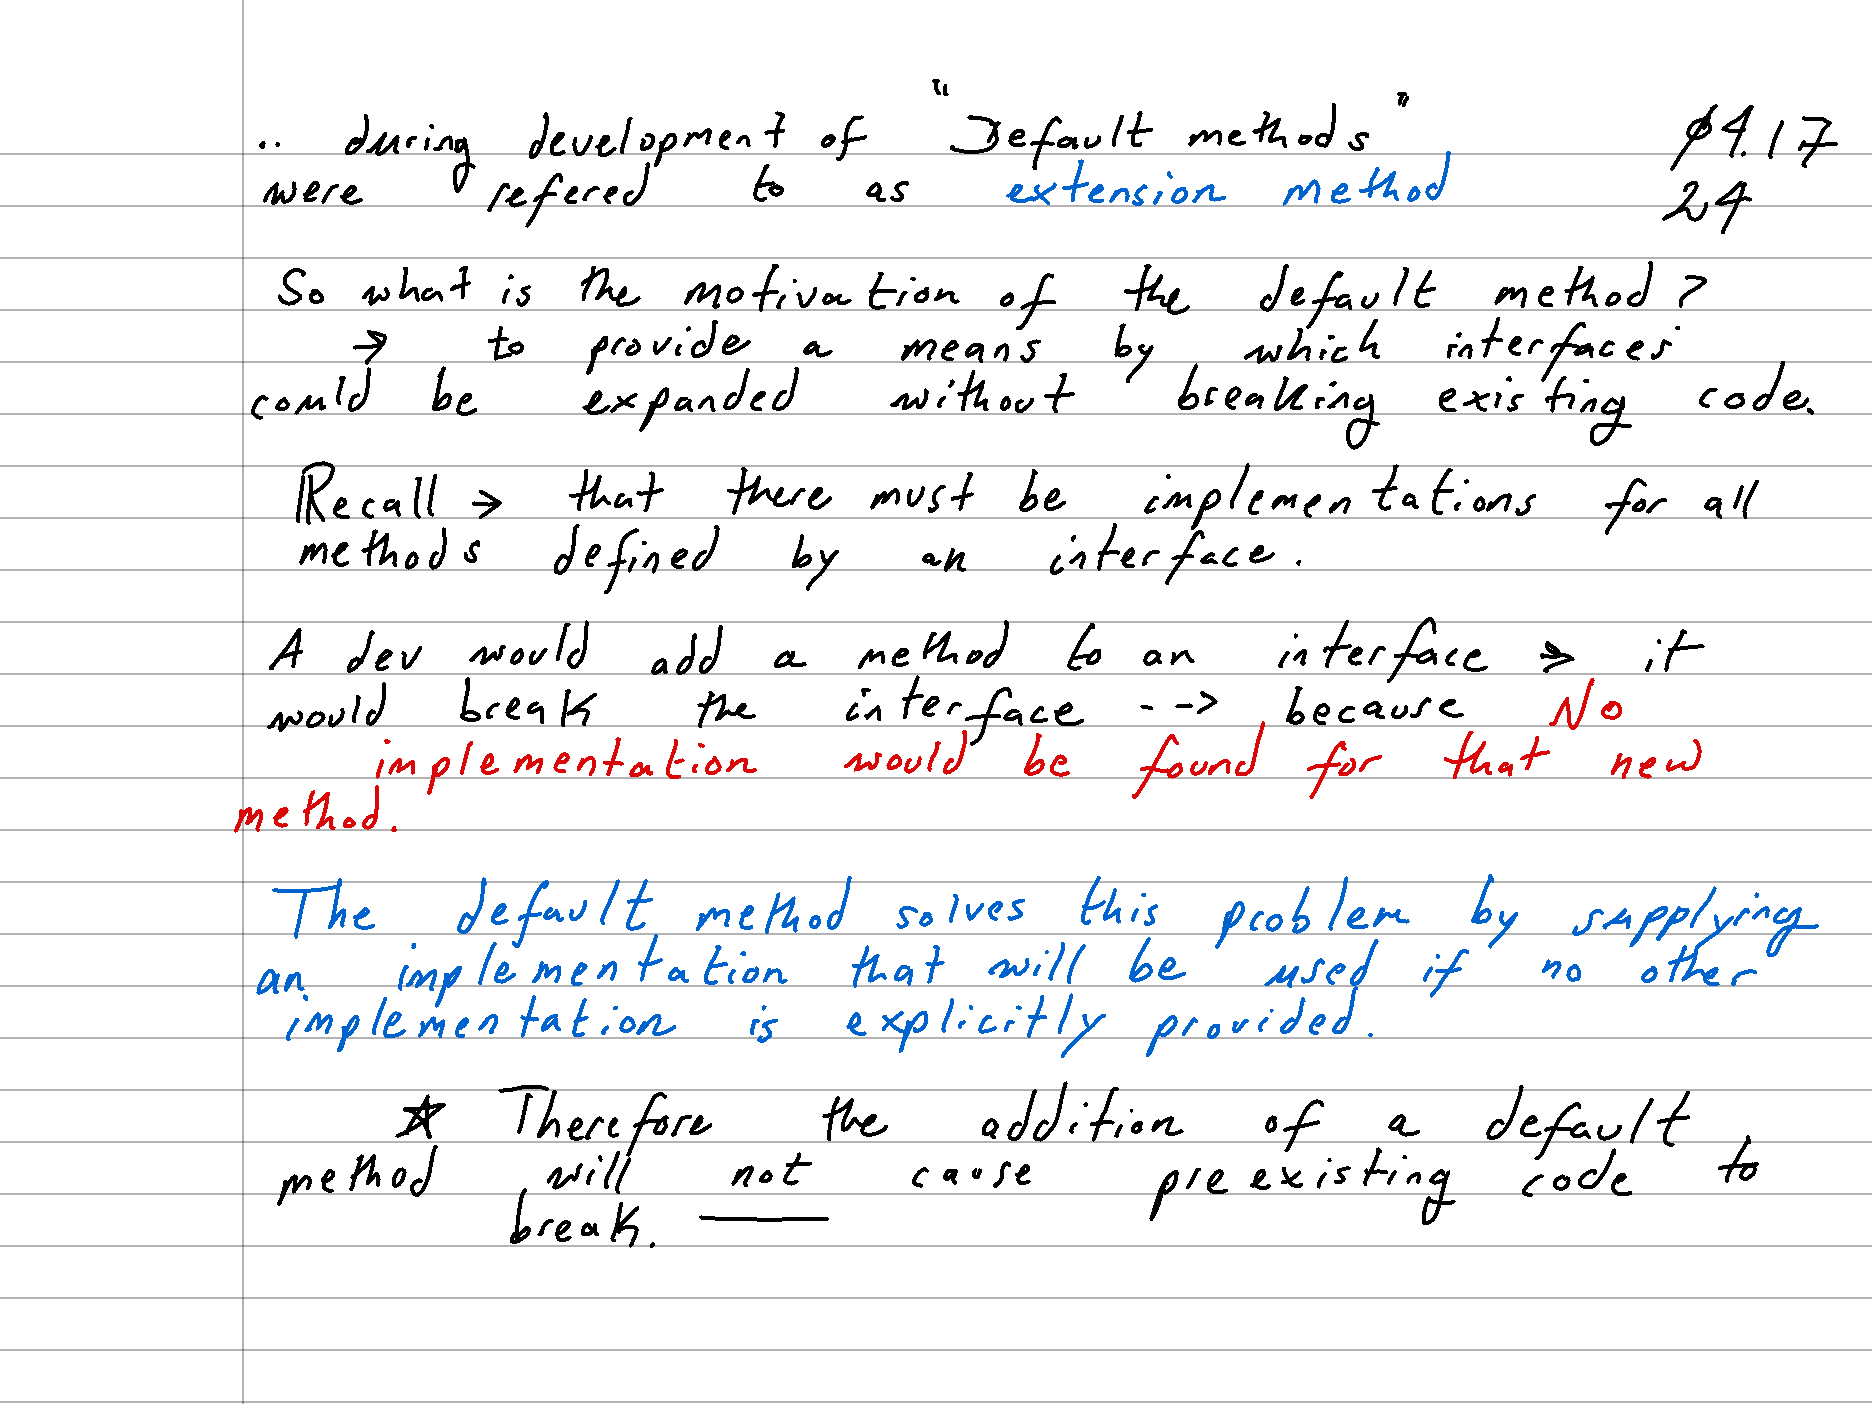 .. during development of "Default methods" ϕ4.17
were refered to as extension method 24
So what is the motivation of the default method?
→ to provide a means by which interfaces
could be expanded without breaking existing code.
Recall → that there must be implementations for all
methods defined by an interface.
A dev would add a method to an interface → it
would break the interface --> because No
implementation would be found for that new
method.
The default method solves this problem by supplying
an implementation that will be used if no other
implementation is explicitly provided.
☆ Therefore the addition of a default
method will not cause preexisting code to
break.